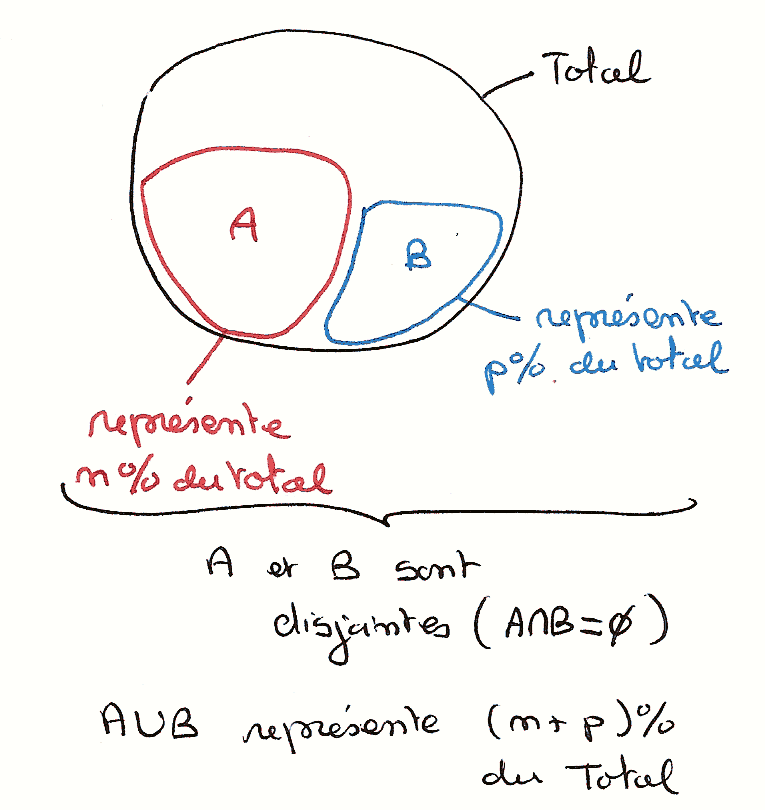 Total
A
B
représente
p% du total
représente
n% du total
A et B sont
disjointes (A∩B=∅)
A∪B représente (n+p)%
du Total